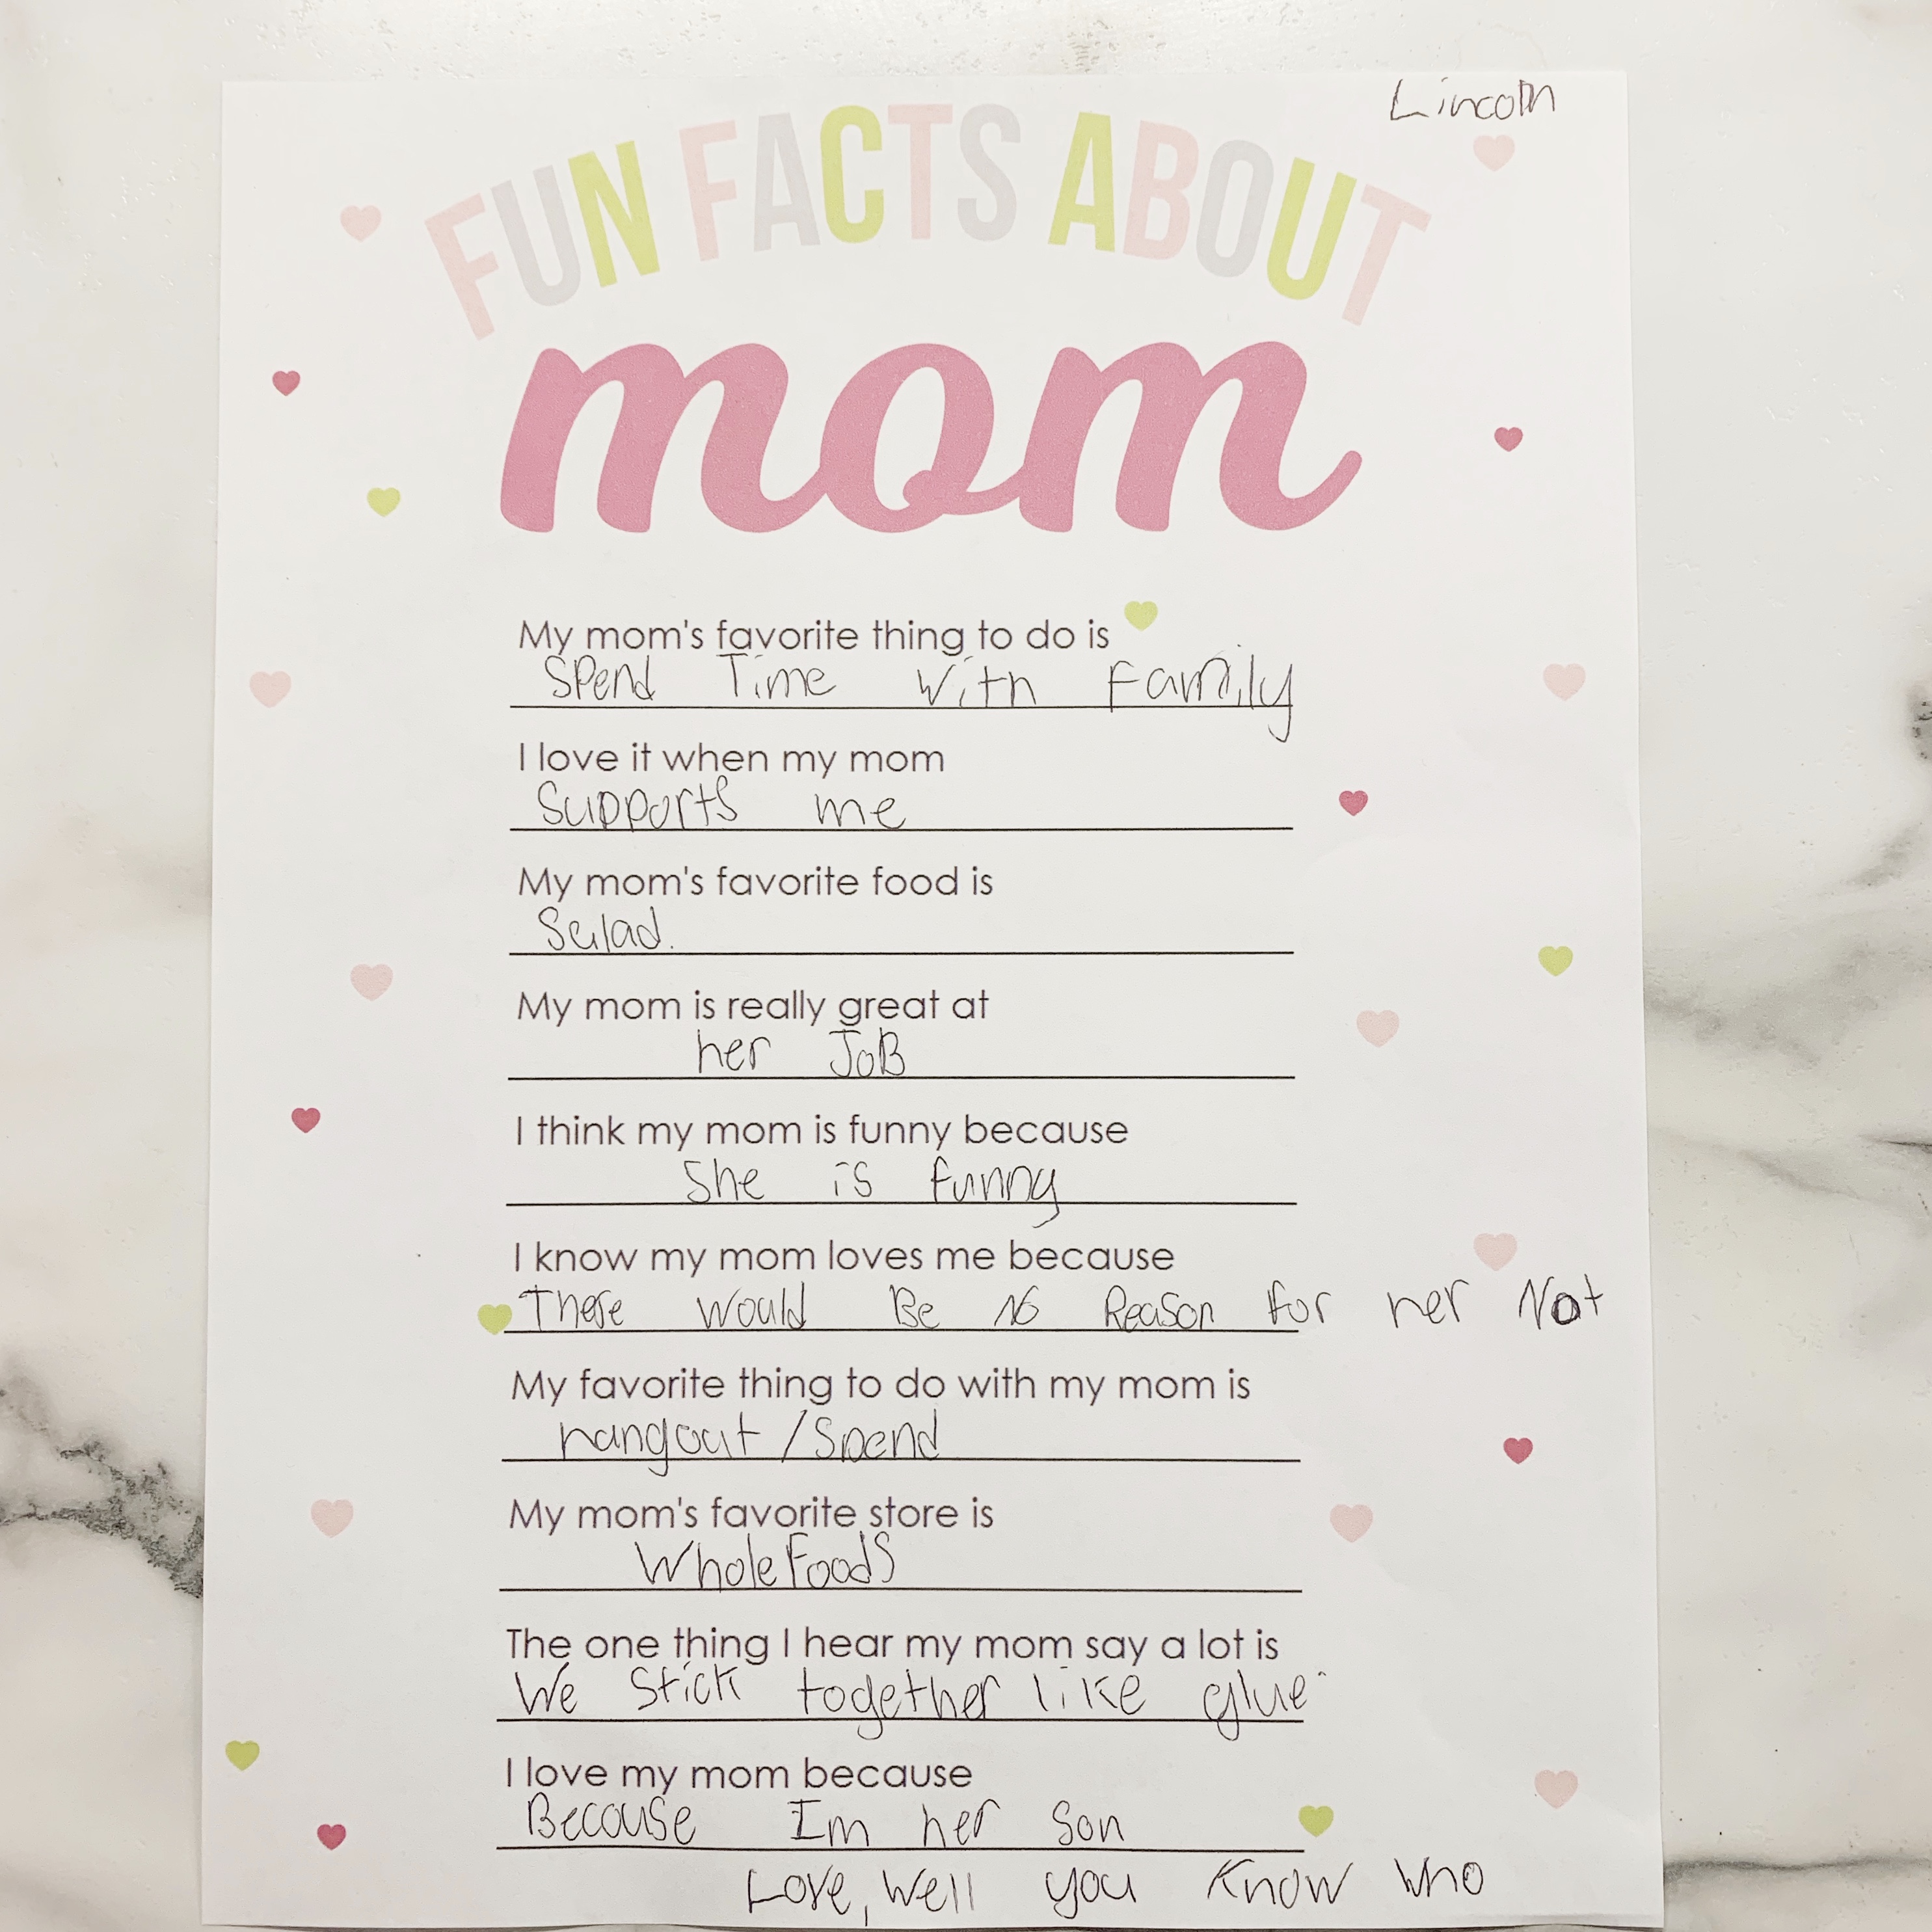 Lincoln
FUN FACTS ABOUT
mom
My mom's favorite thing to do is
Spend Time with Family
I love it when my mom
Supports me
My mom's favorite food is
Salad.
My mom is really great at
her JoB
I think my mom is funny because
She is funny
I know my mom loves me because
There Would Be No Reason for her Not
My favorite thing to do with my mom is
hangout / Spend
My mom's favorite store is
Whole Foods
The one thing I hear my mom say a lot is
We Stick together like glue
I love my mom because
Because Im her Son
Love, Well you Know who